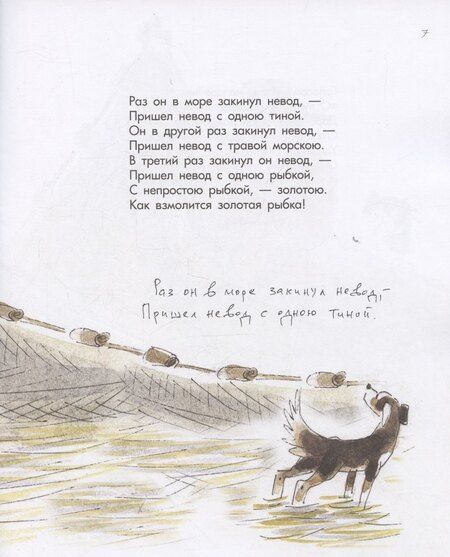 7
Раз он в море закинул невод, —
Пришел невод с одною тиной.
Он в другой раз закинул невод, —
Пришел невод с травой морскою.
В третий раз закинул он невод, —
Пришел невод с одною рыбкой,
С непростою рыбкой, — золотою.
Как взмолится золотая рыбка!
Раз он в море закинул невод,–
Пришел невод с одною тиной.